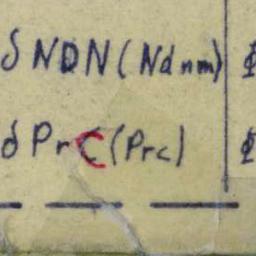 δ NDN (Ndnm) Φ
δ PrC (Prc) Φ